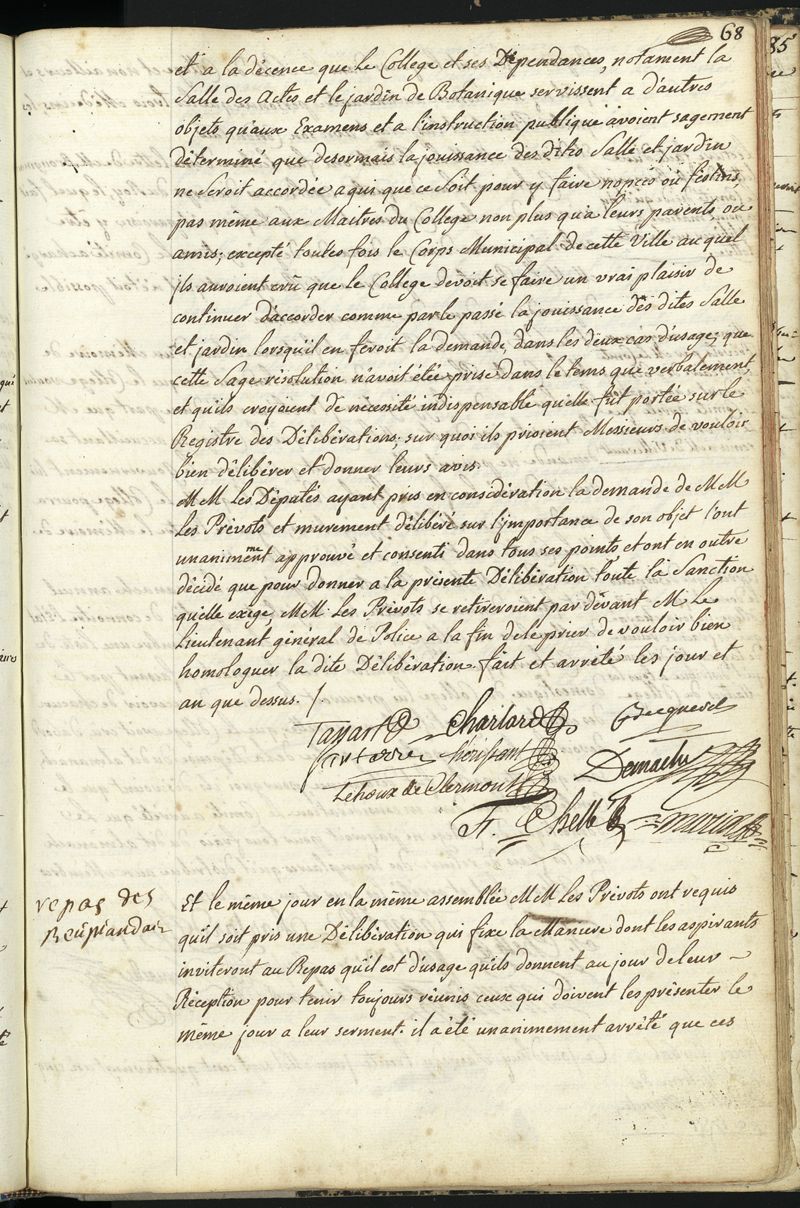 68
et a la décence que le College et ses Dépendances, notament la
Salle des Actes et le jardin de Botanique servissent a d'autres
objets qu'aux Examens et a l'instruction publique avoient sagement
déterminé que desormais la jouissance des dites Salle et jardin
ne seroit accordée a qui que ce Soit pour y faire nopces ou festins,
pas même aux Maitres du College non plus qu'a leurs parents ou
amis; excepté toutes fois le Corps Municipal de cette Ville au quel
ils auroient crû que le College devoit se faire un vrai plaisir de
continuer d'accorder comme par le passé la jouissance des dites Salle
et jardin lorsqu'il en feroit la demande dans les deux cas d'usage; que
cette Sage résolution n'avoit étée prise dans le tems que verbalement
et qu'ils croyoient de nécessité indispensable qu'elle fût portée sur le
Registre des Délibérations; sur quoi ils prioient Messieurs de vouloir
bien délibérer et donner leurs avis.
MM. Les Députés ayant pris en considération la demande de MM
Les Prévots et murement délibéré sur l'importance de son objet l'ont
unanimemt approuvé et consenti dans tous ses points et ont en outre
décidé que pour donner a la présente Délibération toute la Sanction
qu'elle exige, MM. Les Prévots se retireroient par dévant M. Le
Lieutenant géneral de Police a la fin de le prier de vouloir bien
homologuer la dite Délibération. fait et arrêté les jour et
an que dessus. /.
Tassart Charlard Becqueret
hérissant Demachy
Lehoux de Clermont
Et le même jour en la même assemblée MM. Les Prévots ont requis
repas des
Récipiandair
qu'il soit pris une Délibération qui fixe la Maniere dont les aspirants
inviteront au Repas qu'il est d'usage qu'ils donnent au jour de leur
Réception pour tenir toujours réunis ceux qui doivent les présenter le
même jour a leur serment. il a été unanimement arrêté que ces